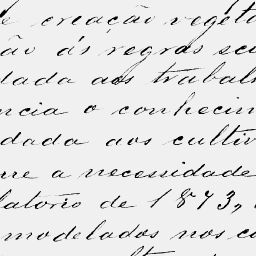 de creação vegeta
ão ás regras scie
dada aos trabalh
ncia o conhecim
dada aos cultiv
re a necessidade
latorio de 1873,
modelados nos co